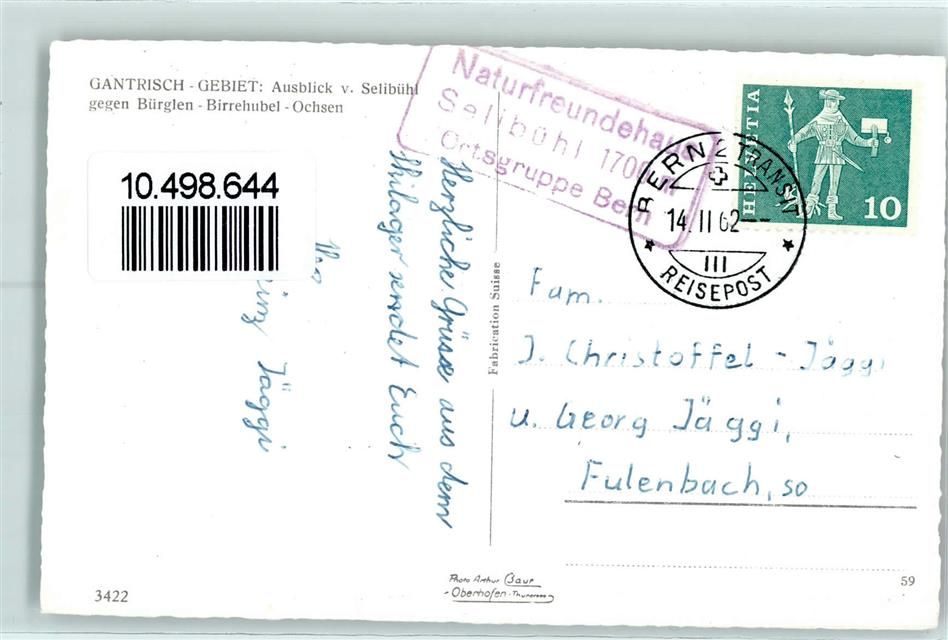 GANTRISCH - GEBIET: Ausblick v. Selibühl
gegen Bürglen - Birrehubel - Ochsen
10.498.644
Naturfreundehaus
Selibühl 1700m
Ortsgruppe Bern
BERN 2 TRANSIT
14.II 62
III
REISEPOST
HELVETIA
10
Herzliche Grüsse aus dem
Skilager sendet Euch
Jäggi
Fabrication Suisse
Fam.
J. Christoffel - Jäggi
u. Georg Jäggi,
Fulenbach, so
Photo Arthur Baur
Oberhofen - Thunersee
3422
59